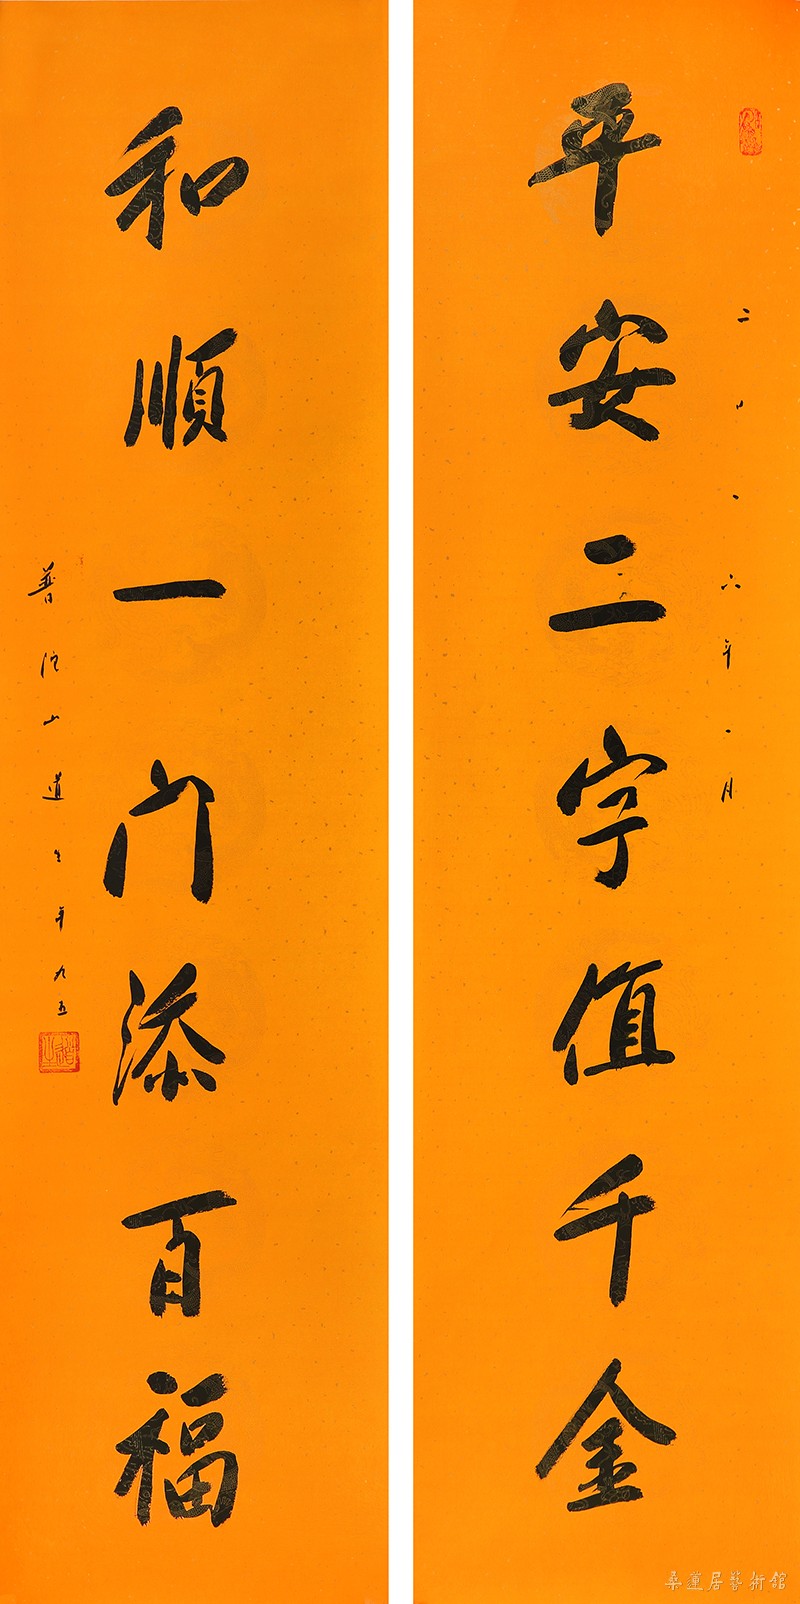 平安二字值千金
二〇一六年一月
和順一门添百福
普陀山道生年九五
桑蓮居藝術館